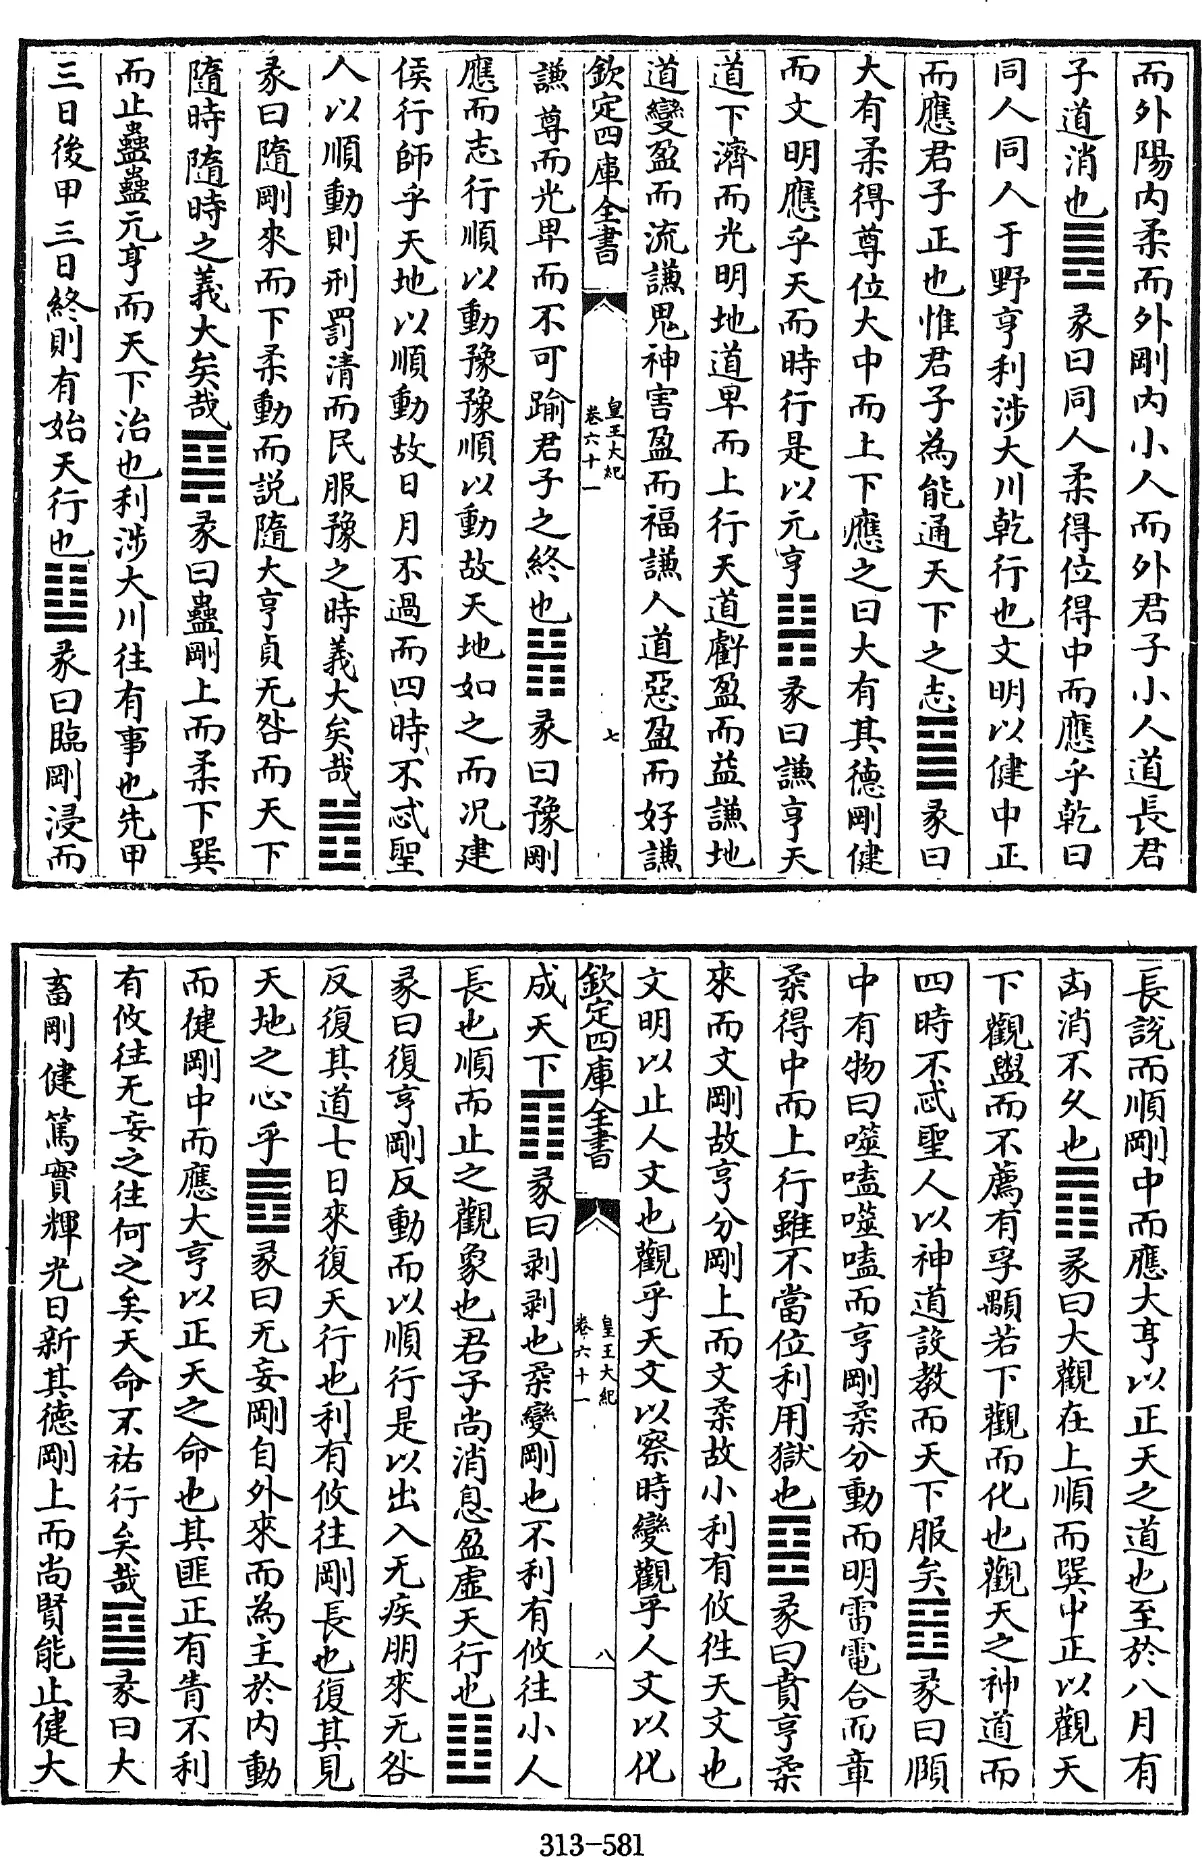 而外陽内柔而外剛内小人而外君子小人道長君
子道消也䷌彖曰同人柔得位得中而應乎乾曰
同人同人于野亨利涉大川乾行也文明以健中正
而應君子正也惟君子為能通天下之志䷍彖曰
大有柔得尊位大中而上下應之曰大有其德剛健
而文明應乎天而時行是以元亨䷎彖曰謙亨天
道下濟而光明地道卑而上行天道虧盈而益謙地
道變盈而流謙鬼神害盈而福謙人道惡盈而好謙
欽定四庫全書
皇王大紀
卷六十一
七
謙尊而光卑而不可踰君子之終也䷏彖曰豫剛
應而志行順以動豫豫順以動故天地如之而况建
侯行師乎天地以順動故日月不過而四時不忒聖
人以順動則刑罰清而民服豫之時義大矣哉䷐
彖曰隨剛來而下柔動而説隨大亨貞无咎而天下
隨時隨時之義大矣哉䷑彖曰蠱剛上而柔下巽
而止蠱蠱元亨而天下治也利涉大川往有事也先甲
三日後甲三日終則有始天行也䷒彖曰臨剛浸而
長說而順剛中而應大亨以正天之道也至於八月有
凶消不久也䷓彖曰大觀在上順而巽中正以觀天
下觀盥而不薦有孚顒若下觀而化也觀天之神道而
四時不忒聖人以神道設教而天下服矣䷔彖曰頤
中有物曰噬嗑噬嗑而亨剛柔分動而明雷電合而章
柔得中而上行雖不當位利用獄也䷕彖曰賁亨柔
來而文剛故亨分剛上而文柔故小利有攸徃天文也
文明以止人文也觀乎天文以察時變觀乎人文以化
欽定四庫全書
皇王大紀
卷六十一
八
成天下䷖彖曰剥剥也柔變剛也不利有攸往小人
長也順而止之觀象也君子尚消息盈虛天行也䷗
彖曰復亨剛反動而以順行是以出入无疾朋來无咎
反復其道七日來復天行也利有攸往剛長也復其見
天地之心乎䷘彖曰无妄剛自外來而為主於内動
而健剛中而應大亨以正天之命也其匪正有眚不利
有攸往无妄之往何之矣天命不祐行矣哉䷙彖曰大
畜剛健篤實輝光日新其德剛上而尚賢能止健大
313-581